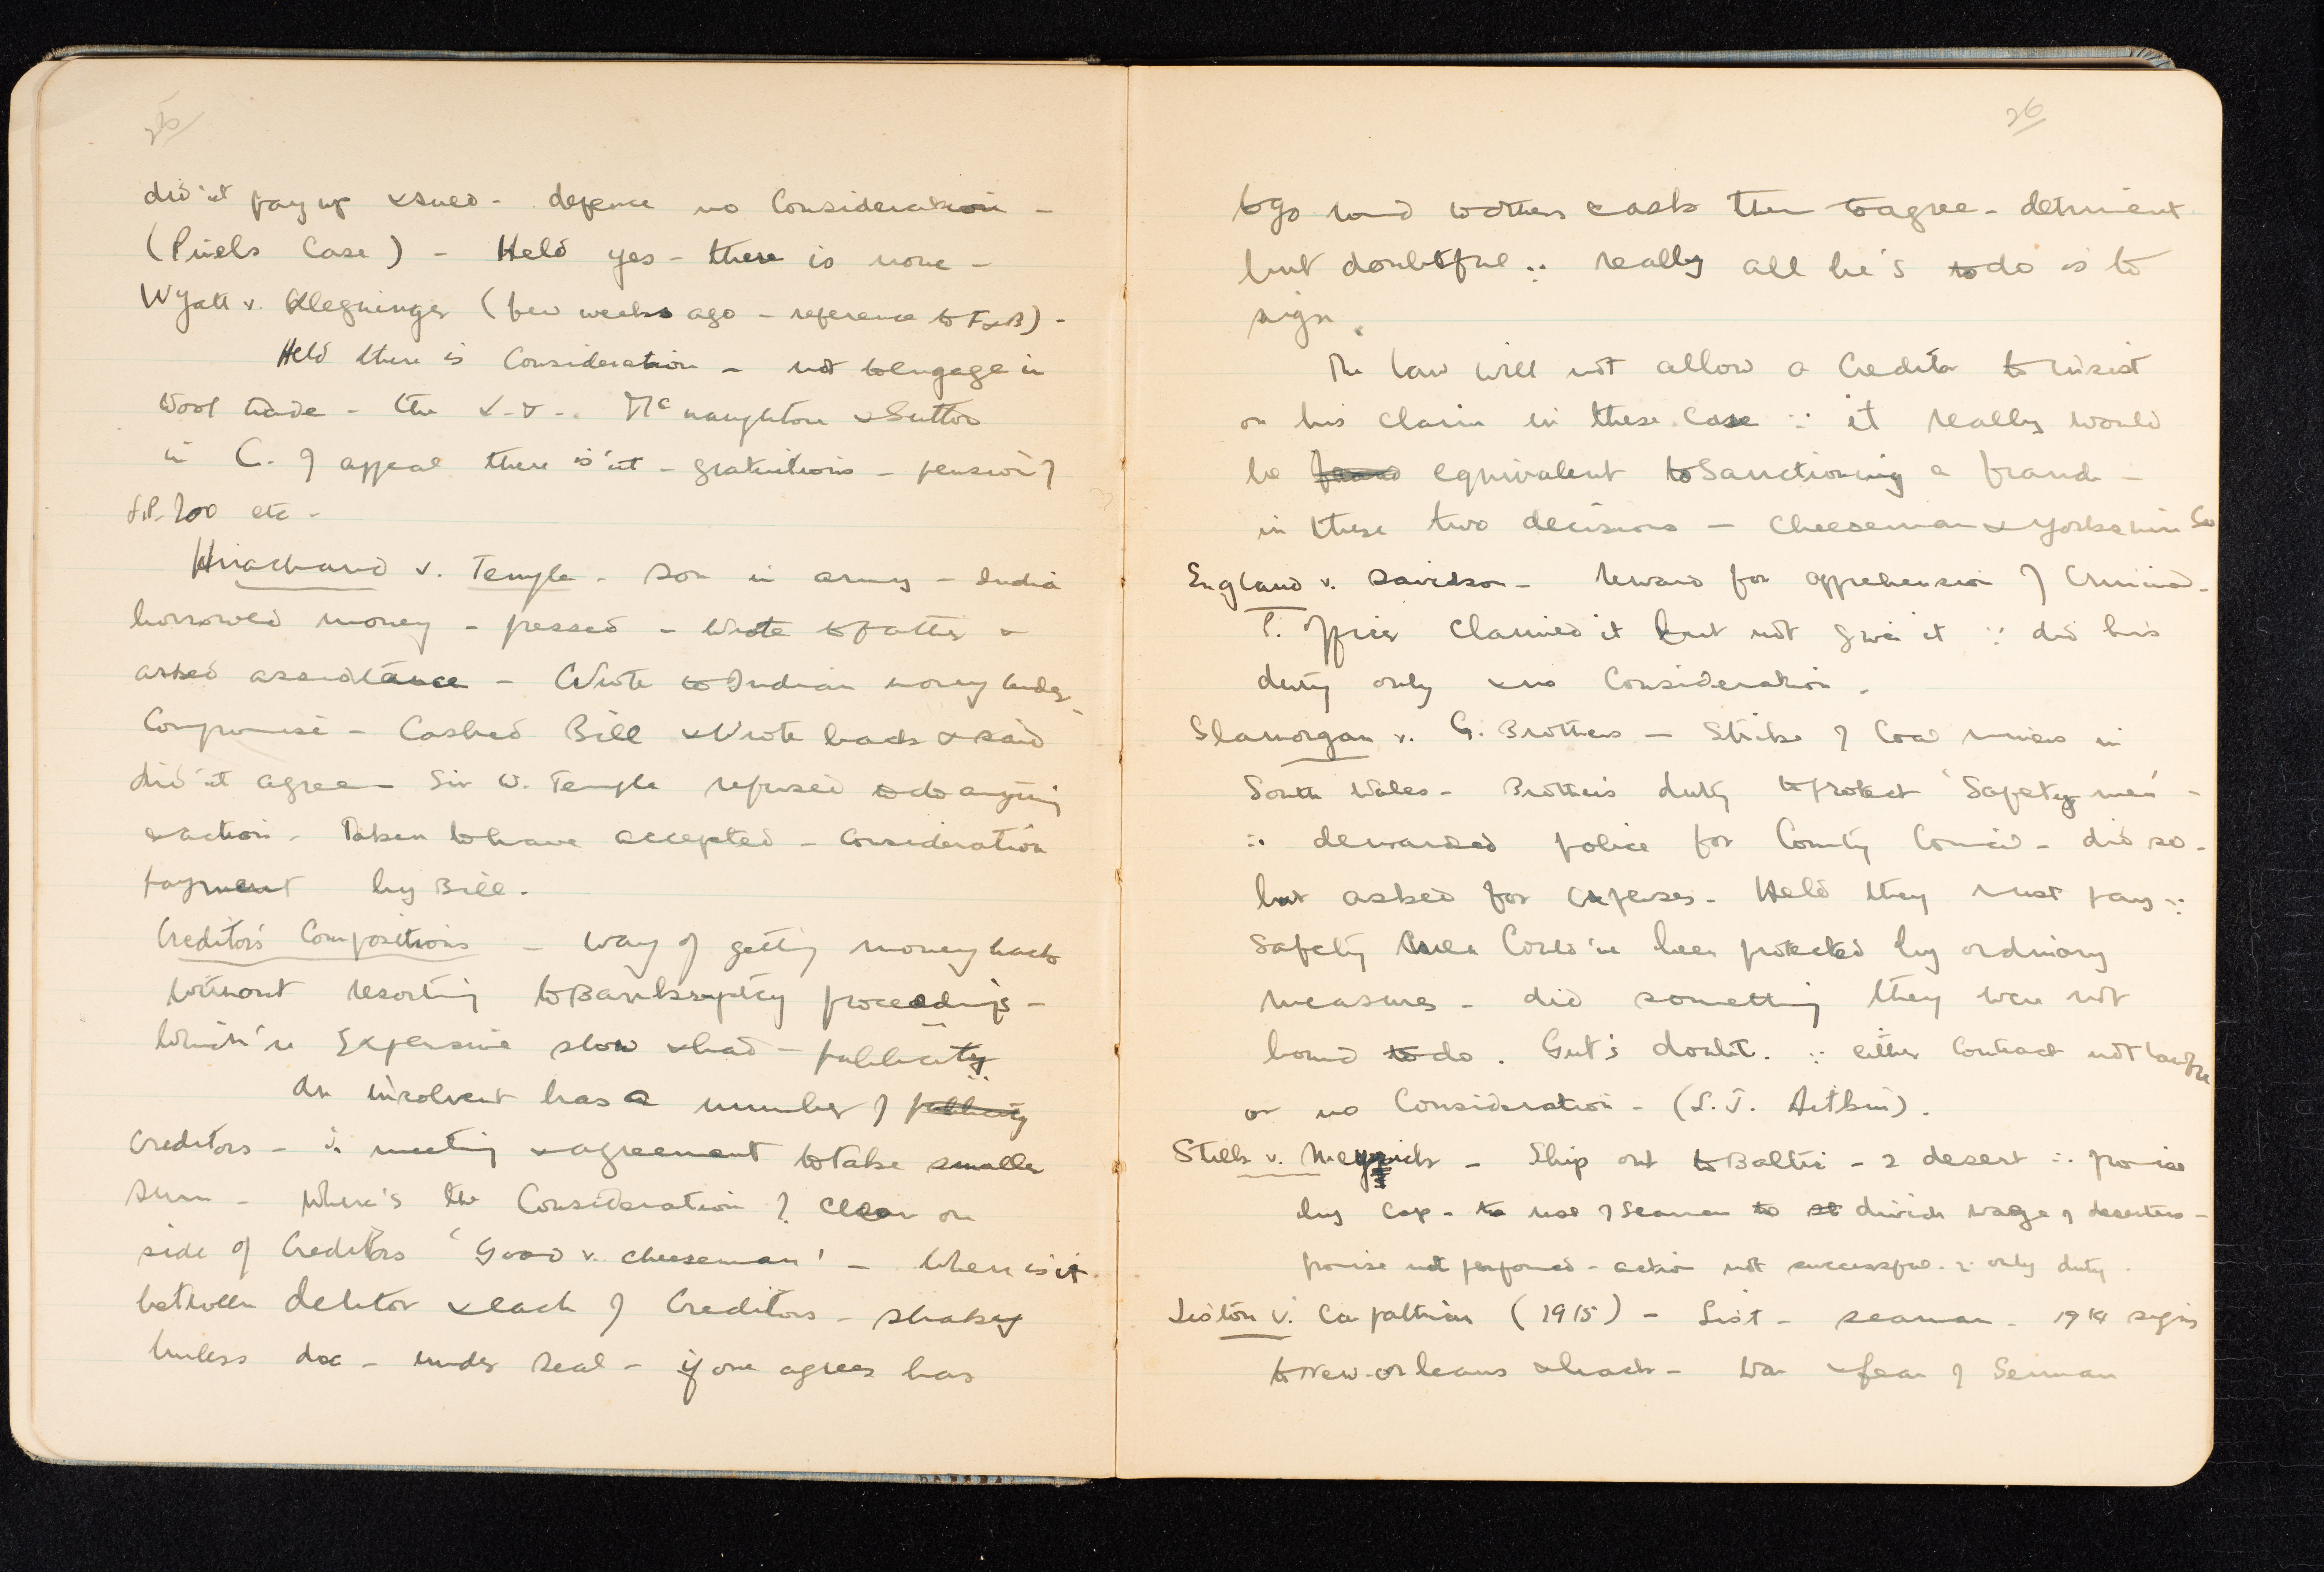 25
did'nt pay up & sued - defence no Consideration -
(Pinels Case) - Held yes - there is none -
Wyatt v. Kreglinger (few weeks ago - reference to F & B) -
Held there is Consideration - not to engage in
Wool trade - the Mc naughton & Sutton
in C. of appeal there is'nt - gratuitous - pension of
200 etc -
Hirachand v. Temple - Son in army - India
borrowed money - pressed - Wrote to father &
asked assistance - Wrote to Indian money lender -
Compromise - Cashed Bill & Wrote back & said
did'nt agree - Sir W. Temple refused to do anything
& action - Taken to have accepted - Consideration
payment by Bill.
Creditors Compositions - Way of getting money back
without resorting to Bankruptcy proceedings -
Which're Expensive slow & bad - publicity
An insolvent has a number of publicity
Creditors - ∴ meeting & agreement to take smaller
sum - Where's the Consideration? Clear on
side of Creditors 'Good v. Cheeseman' - Where is it
between debtor & each of Creditors - shakey
Unless doc - under Seal - if one agrees has
26
to go round to others & ask them to agree - detriment
but doubtful ∵ really all he's to do is to
sign.
The law will not allow a Creditor to insist
on his claim in these Case ∵ it really would
be fraud equivalent to Sanctioning a fraud -
in these two decisions - Cheeseman & Yorkshire Co
England v. Davidson - Reward for apprehension of Criminal -
P. Officer Claimed it but not given it ∵ did his
duty only & no Consideration.
Glamorgan v. G. Brothers - Strike of Coal miners in
South Wales - Brothers duty to protect 'Safety men' -
∴ demanded police for County Council - did so -
but asked for expenses - Held they must pay ∵
Safety men Could've been protected by ordinary
measures - did something they were not
bound to do. Gut's doubt. ∵ either Contract not lawful
or no Consideration - (L.J. Aitkin).
Stilk v. Meyrick - Ship out to Baltic - 2 desert ∴ promise
by Cap - to rest of Seamen to st divide wage of deserters -
promise not performed - action not successful ∵ only duty.
Liston v. Carpathian (1915) - List - seaman - 1914 signs
to New-orleans & back - War & fear of German